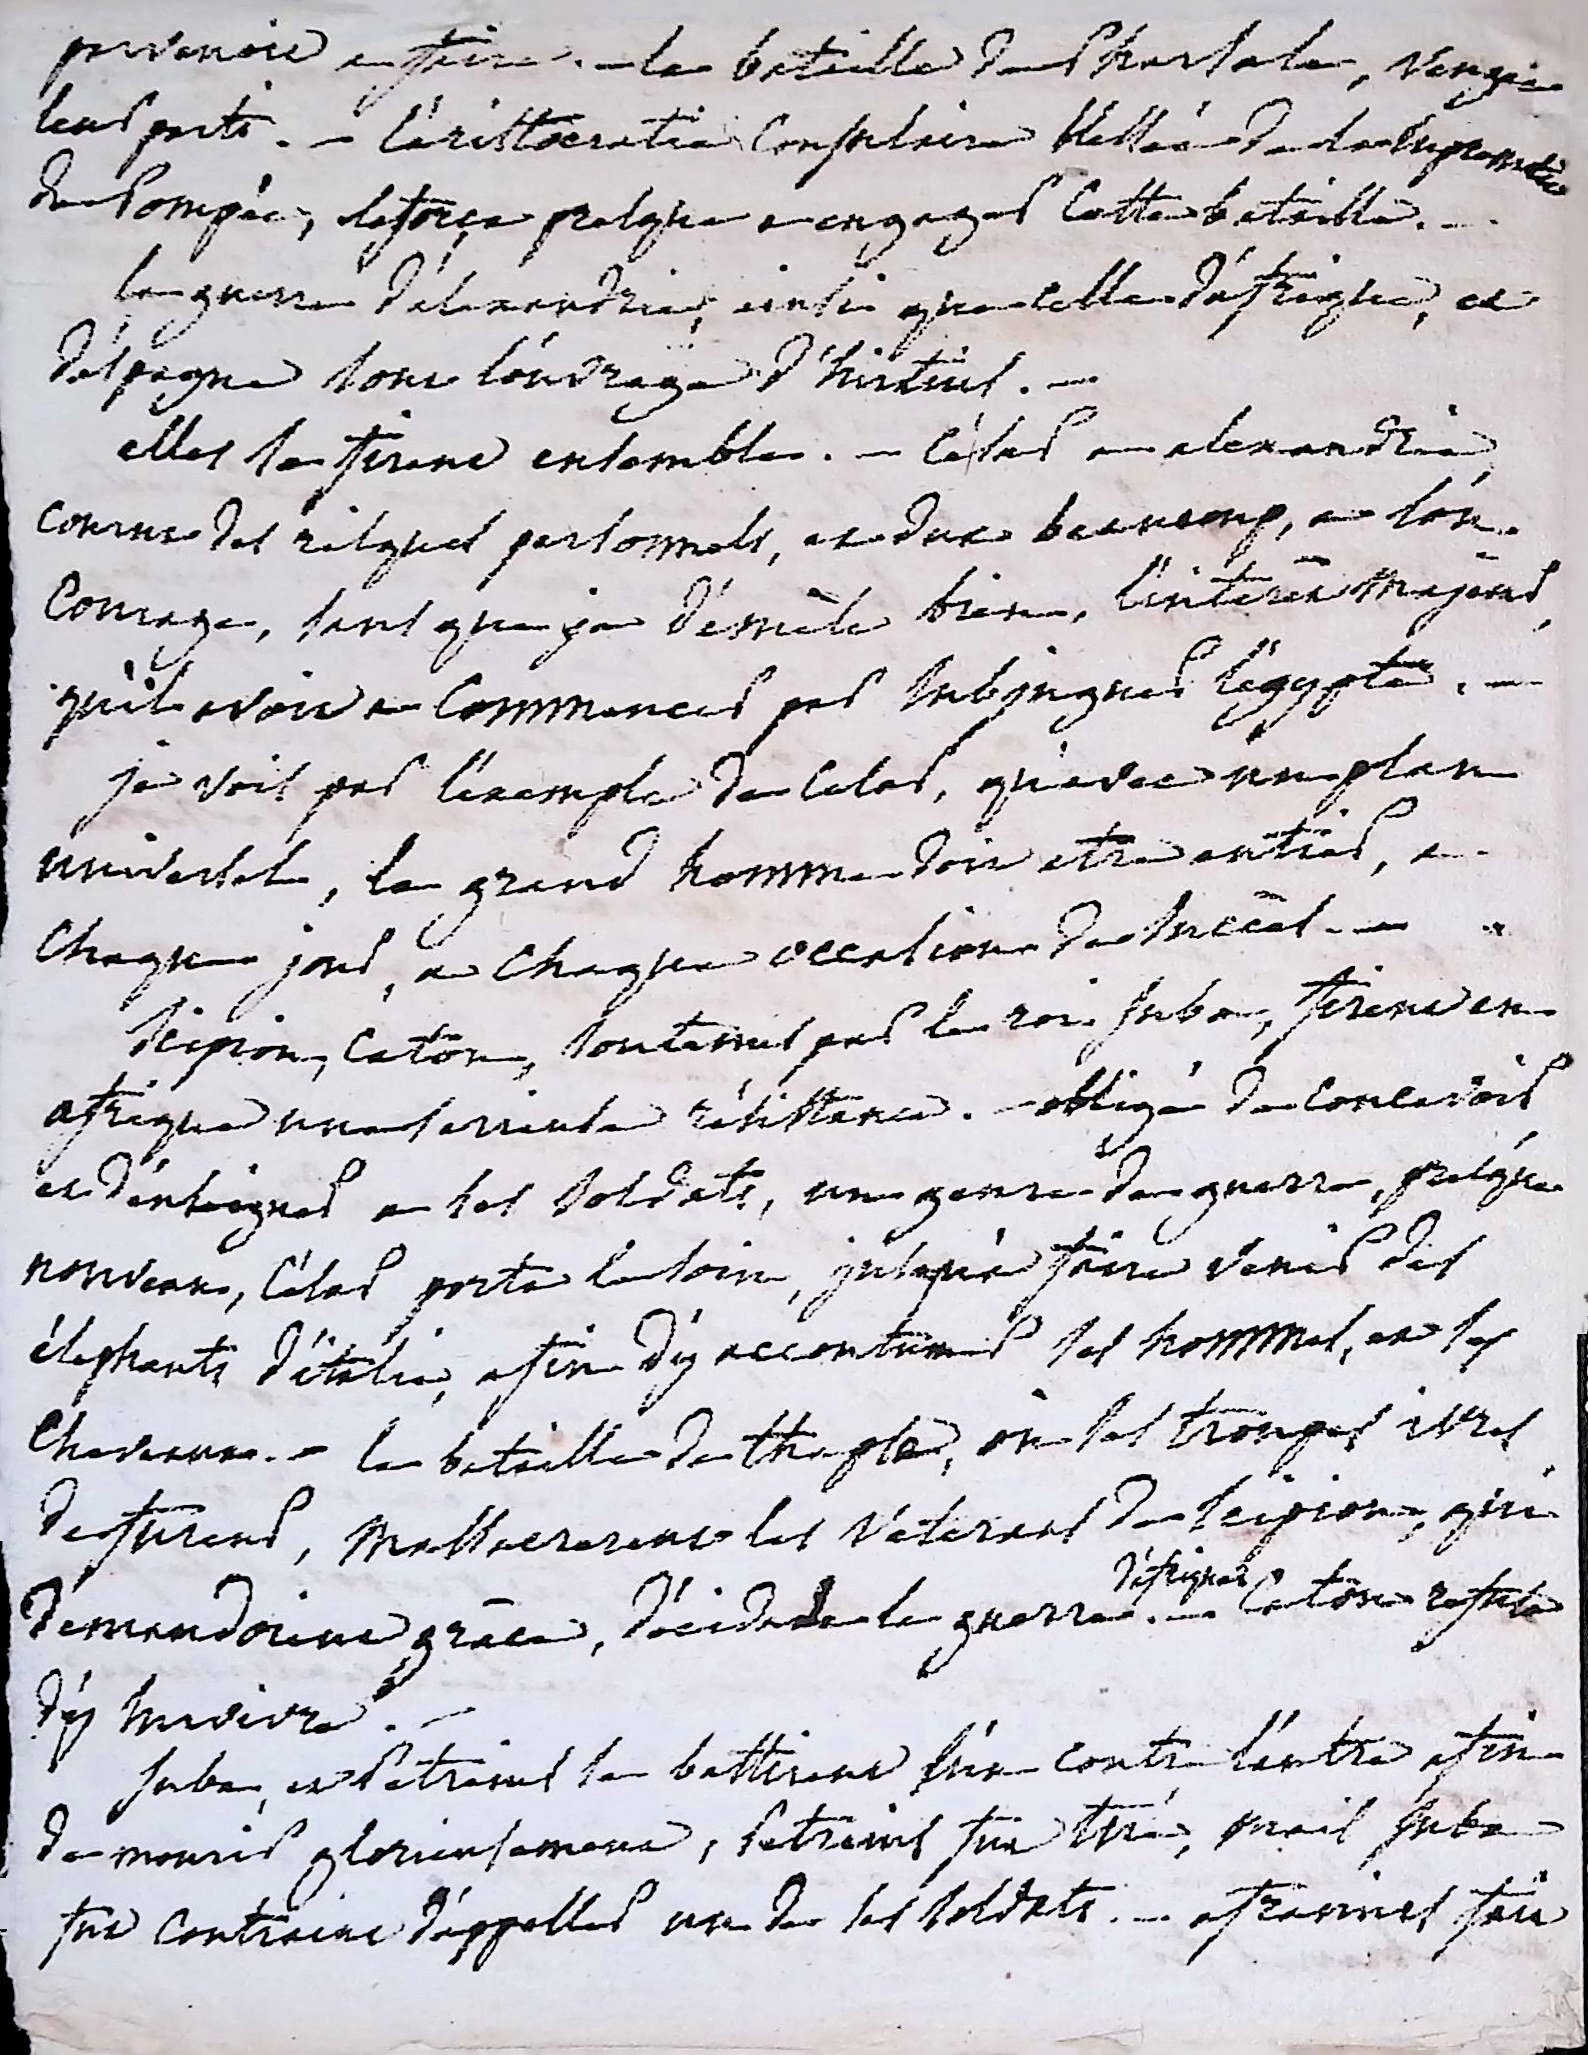 parvenoir a faire. - la bataille de Pharsale, rangea
leur parti. - l'aristocratie consulaire blessée de la suprématie
de Pompée, le força presque a engager cette bataille. -
la guerre d'alexandrie, ainsi que celle d'afrique, et
d'espagne sont l'ouvrage d'hirtius. -
elles se firent ensemble. - César a alexandrie,
courut des risques personnels, et dut beaucoup, a son
courage, sans que je démèle bien, l'intérêt majeur,
qu'il avoit a commencer par subjuguer l'égypte. -
je vois par l'exemple de César, qu'avec un plan
universel, le grand homme doit etre entier, a
chaque jour, a chaque occasion de succès. -
Scipion, Caton, soutenus par le roi Juba, firent en
afrique une serieuse résistance. - obligé de concevoir
et d'enseigner a ses soldats, un genre de guerre, presque
nouveau, César porta le soin, jusqu'a faire venir des
élephants d'italie, afin d'y accoutumer ses hommes, et ses
chevaux. - la bataille de thapse, où ses troupes ivres
de fureur, massacrerent les véterans de Scipion, qui
demandoient grâce, décida de la guerre d'afrique. - Caton refusa
d'y survivre. -
Juba, et Pétreius se battirent l'un contre l'autre afin
de mourir glorieusement, Petreius fut tué, mais Juba
fut contraint d'appeller un de ses soldats. - afranius fait